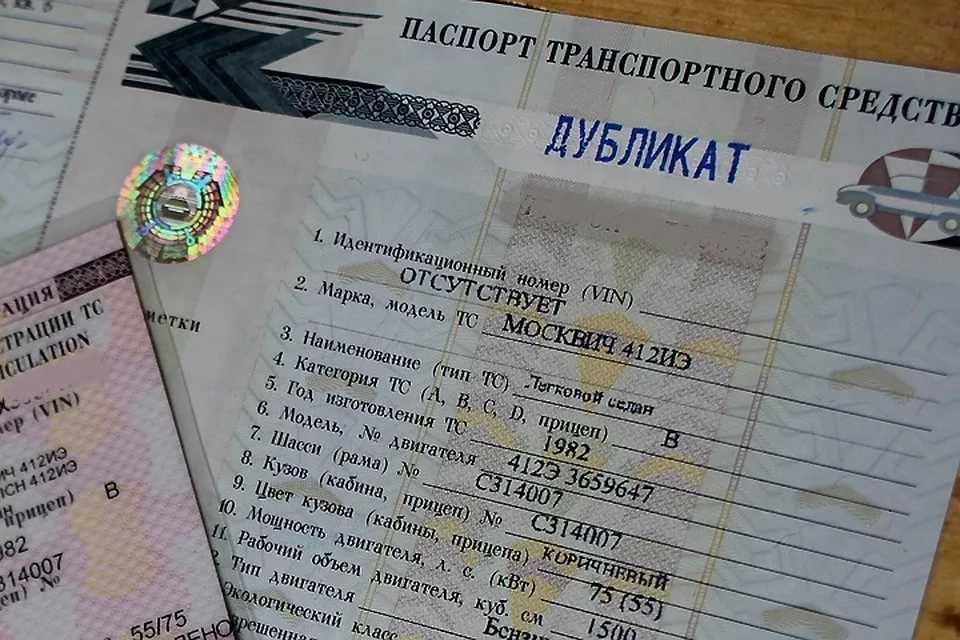 ПАСПОРТ ТРАНСПОРТНОГО СРЕДСТВ
ДУБЛИКАТ
1. Идентификационный номер (VIN)
ОТСУТСТВУЕТ
2. Марка, модель ТС МОСКВИЧ 412ИЭ
3. Наименование (тип ТС) Легковой седан
4. Категория ТС (A, B, C, D, прицеп) B
5. Год изготовления ТС 1982
6. Модель, № двигателя 412Э 3659647
7. Шасси (рама) № С314007
8. Кузов (кабина, прицеп) № С314007
9. Цвет кузова (кабины, прицепа) КОРИЧНЕВЫЙ
10. Мощность двигателя, л. с. (кВт) 75 (55)
11. Рабочий объем двигателя, куб. см 1500
Тип двигателя Бензи
Экологический класс
метки
АЦИЯ
СТРАЦИИ ТС
ICULATION
ер (VIN)
ИЧ 412ИЭ
ICH 412ИЭ
прицеп) B
982
314007
№
55/75